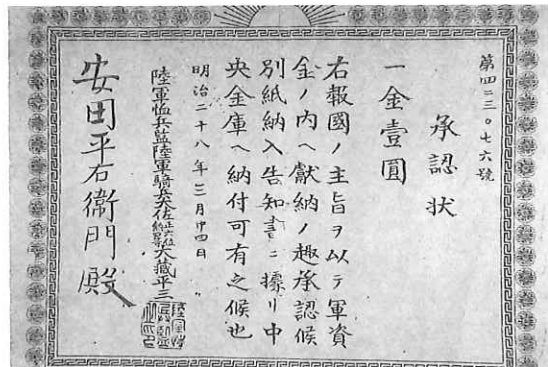 第四二三〇七六號
承認状
一金壹圓
右報國ノ主旨ヲ以テ軍資
金ノ内ヘ獻納ノ趣承認候
別紙納入告知書ニ據リ中
央金庫ヘ納付可有之候也
明治二十八年三月廿四日
陸軍恤兵監陸軍騎兵大佐 大藏平三
安田平右衞門殿